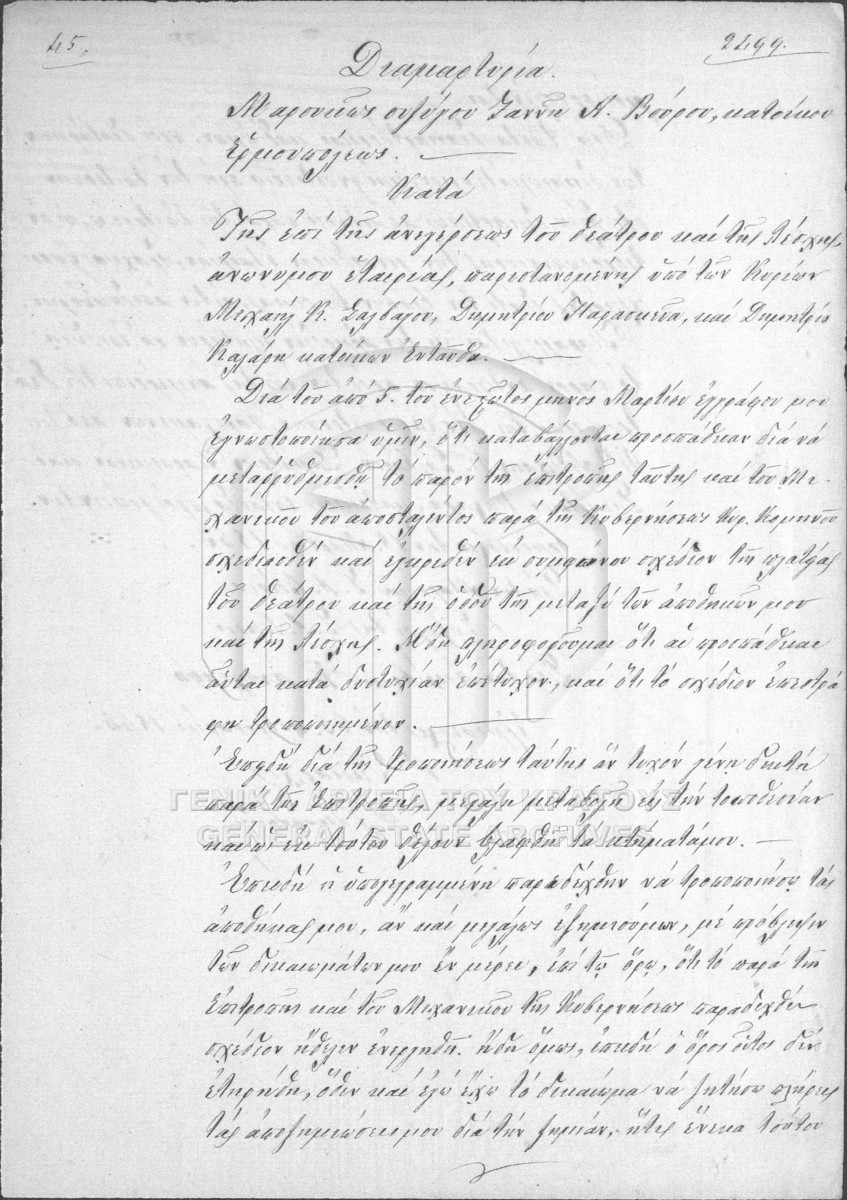 45.
2499.
Διαμαρτυρία.
Μαρουκως συζύγου Ζαννῆ Α. Βούρου, κατοίκου
Ερμουπόλεως.
Κατά
Τῆς ἐπί τῆς ἀνεγέρσεως τοῦ θεάτρου καί τῆς Λέσχης
ἀνωνύμου ἑταιρίας, παριστανομενης ὑπό τῶν Κυρίων
Μιχαήλ Κ. Σαλβάγου, Δημητρίου Παρασκευᾶ, καί Δημητρίου
κατοίκων ἐνταῦθα.
Διά τοῦ ἀπό 5. τοῦ ἐνεστῶτος μηνός Μαρτίου ἐγγράφου μου
ἐγνωστοποίησα ὑμῖν, ὅτι καταβάλλονται προσπάθειαι διά νά
μεταῤῥυθμισθῇ τό παρά τῆς ἐπιτροπῆς ταύτης καί τοῦ Μη-
χανικοῦ τοῦ ἀποσταλέντος παρά τῆς Κυβερνήσεως Κυρ. Κομνηνοῦ
σχεδιασθέν καί ἐγκριθέν ἐκ συμφώνου σχέδιον τῆς πλατείας
τοῦ θεάτρου καί τῆς ὁδοῦ τῆς μεταξύ τῶν ἀποθηκῶν μου
καί τῆς Λέσχης. Ἤδη πληροφοροῦμαι ὅτι αἱ προσπάθειαι
αὗται κατά δυστυχίαν ἐπέτυχον, καί ὅτι τό σχέδιον ἐπεστρά
φη τροποποιημένον.
Ἐπειδή διά τῆς τροποποιήσεως ταύτης ἄν τυχόν γένῃ δεκτή
παρά τῆς Ἐπιτροπῆς, μεγάλη μεταβολή εἰς τήν τοποθεσίαν
καί ἐκ τούτου θέλουν βλαφθῆ τα κτήματάμου.
Ἐπειδή ἡ ὑπογεγραμμένη παρεδέχθην νά τροποποιήσω τάς
ἀποθήκας μου, ἄν καί μεγάλως ἐζημιούμην, μέ πρόβλεψιν
τῶν δικαιωμάτων μου ἐν μέρει, ἐπί τῷ ὅρῳ, ὅτι τό παρά τῆς
Ἐπιτροπῆς καί τοῦ Μηχανικοῦ τῆς Κυβερνήσεως παραδεχθέν
σχέδιον ἤθελεν ἐνεργηθῆ. ἤδη ὅμως, ἐπειδή ὁ ὅρος οὗτος δέν
ἐτηρήθη, ὅθεν καί ἐγώ ἔχω τό δικαίωμα νά ζητήσω πλήρεις
τάς ἀποζημιώσεις μου διά τήν ζημίαν, ἥτις ἕνεκα τούτου
ΓΕΝΙΚΑ ΑΡΧΕΙΑ ΤΟΥ ΚΡΑΤΟΥΣ
GENERAL STATE ARCHIVES